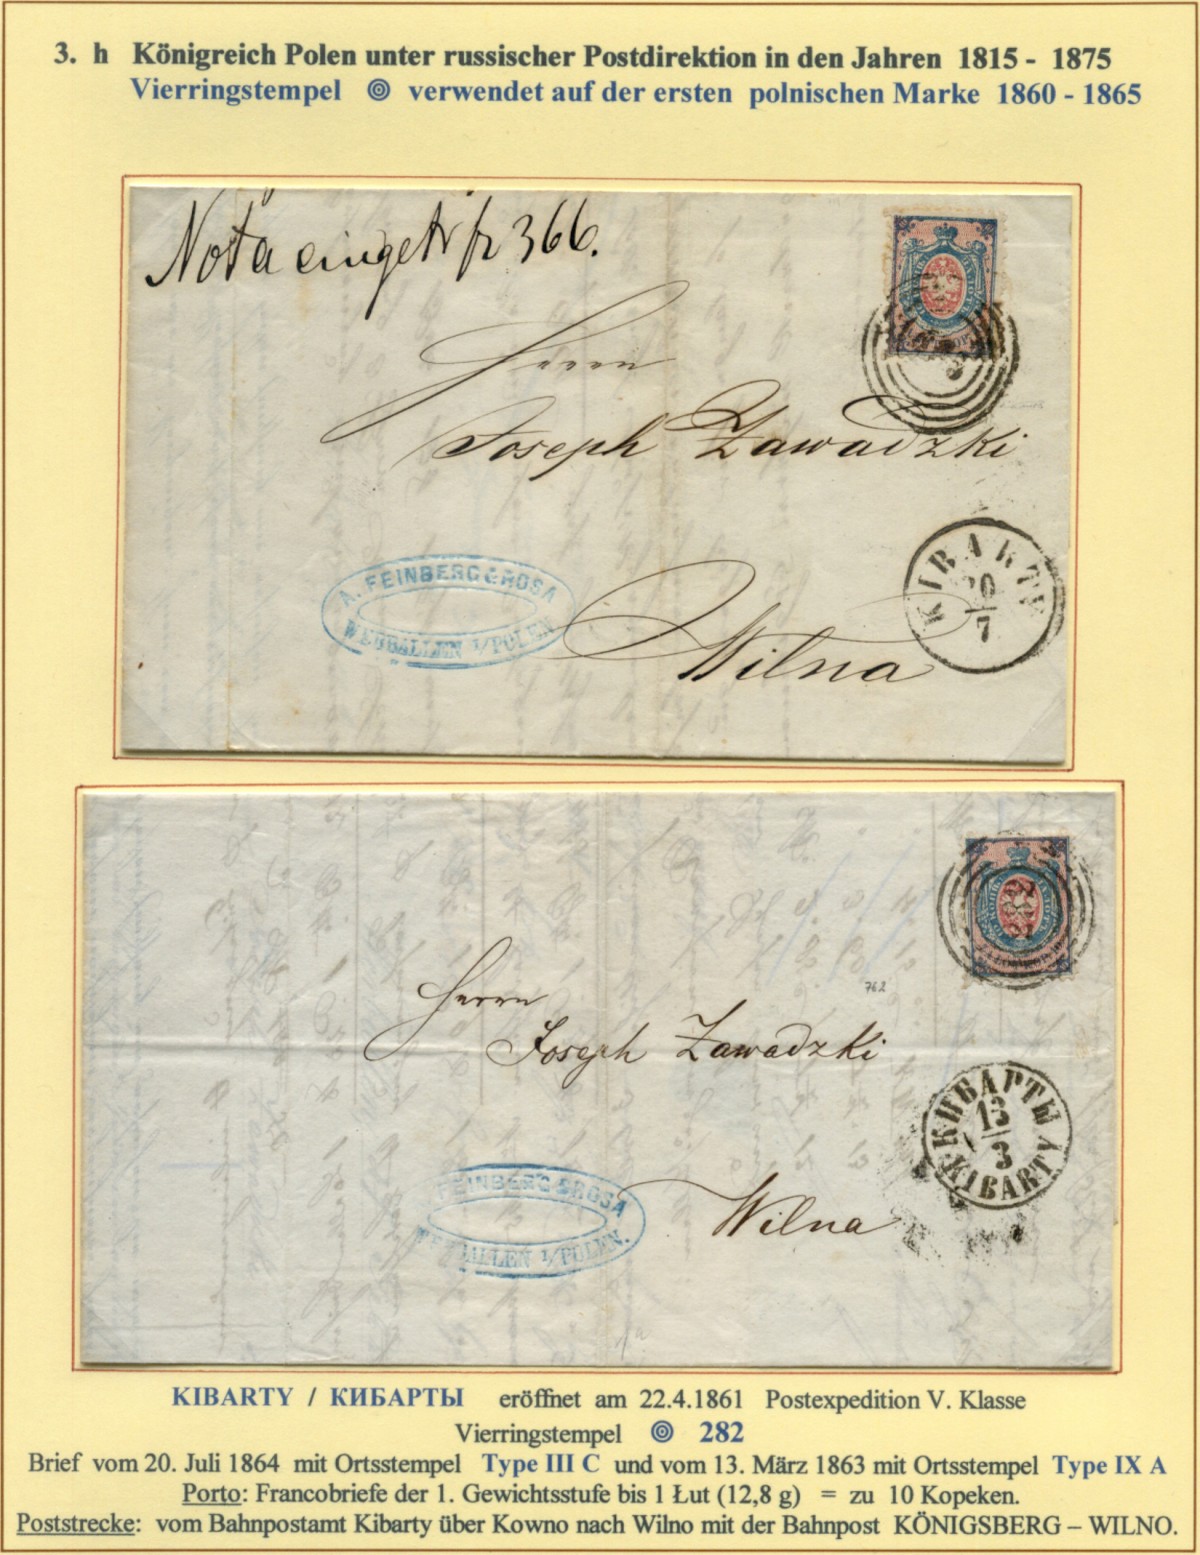 3. h Königreich Polen unter russischer Postdirektion in den Jahren 1815 - 1875
Vierringstempel verwendet auf der ersten polnischen Marke 1860 - 1865
Nota einget fr 366.
Herrn
Joseph Zawadzki
KIBARTY
20
7
A. FEINBERG & ROSA
WERBALLEN I/POLEN
Wilna
282
762
Herrn
Joseph Zawadzki
КИБАРТЫ
13
3
KIBARTY
FEINBERG & ROSA
WERBALLEN I/POLEN.
Wilna
KIBARTY / КИБАРТЫ eröffnet am 22.4.1861 Postexpedition V. Klasse
Vierringstempel 282
Brief vom 20. Juli 1864 mit Ortsstempel Type III C und vom 13. März 1863 mit Ortsstempel Type IX A
Porto: Francobriefe der 1. Gewichtsstufe bis 1 Łut (12,8 g) = zu 10 Kopeken.
Poststrecke: vom Bahnpostamt Kibarty über Kowno nach Wilno mit der Bahnpost KÖNIGSBERG – WILNO.